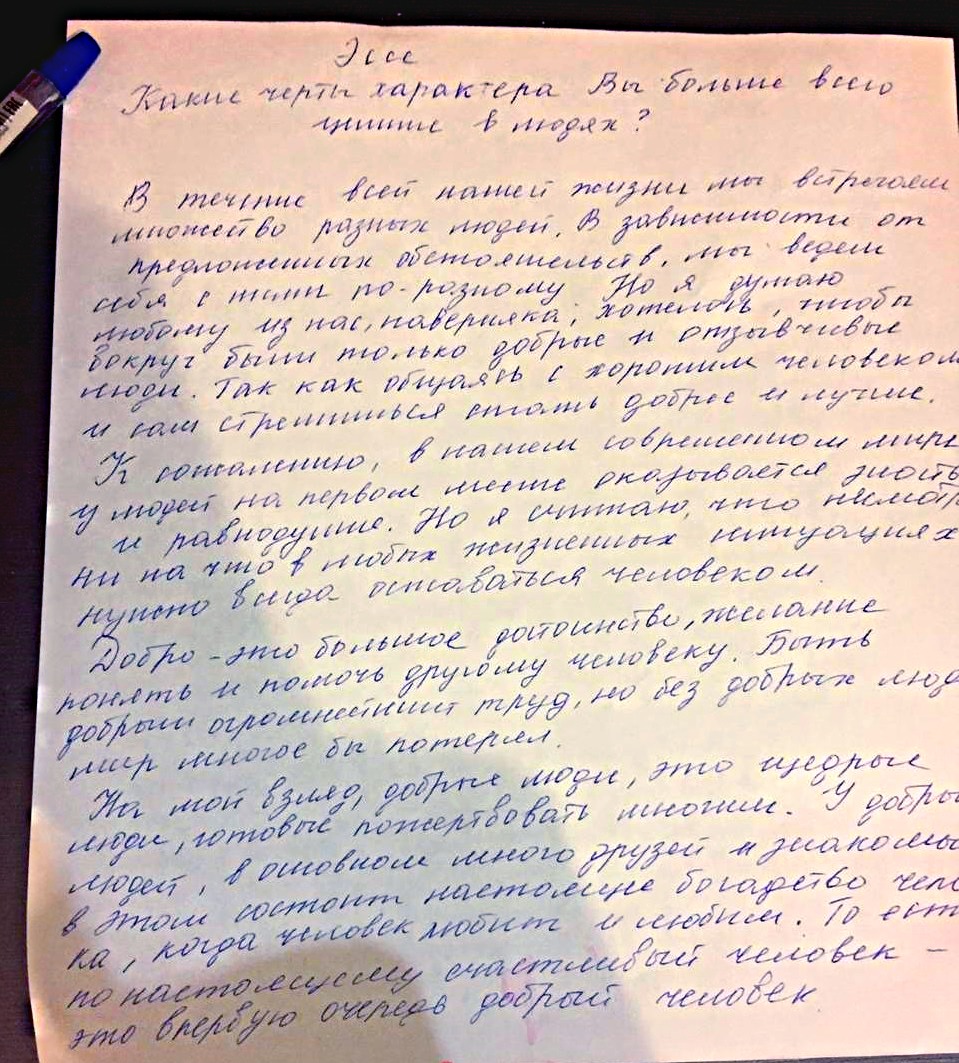 Эссе
Какие черты характера Вы больше всего
цените в людях?
В течение всей нашей жизни мы встречаем
множество разных людей. В зависимости от
предложенных обстоятельств, мы ведем
себя с ними по-разному Но я думаю
любому из нас, наверняка, хотелось, чтобы
вокруг были только добрые и отзывчивые
люди. Так как общаясь с хорошим человеком
и сам стремишься стать добрее и лучше.
К сожалению, в нашем современном мире
у людей на первом месте оказывается злость
и равнодушие. Но я считаю, что несмотр
ни на что в любых жизненных ситуациях
нужно всегда оставаться человеком.
Добро - это большое достоинство, желание
понять и помочь другому человеку. Быть
добрым огромнейший труд, но без добрых люд
мир многое бы потерял.
На мой взгляд, добрые люди, это щедрые
люди, готовые пожертвовать многим. У добры
людей, в основном много друзей и знакомы
в этом состоит настоящие богадство чело
ка, когда человек любит и любим. То ест
по настоящему счастливый человек -
это впервую очередь добрый человек